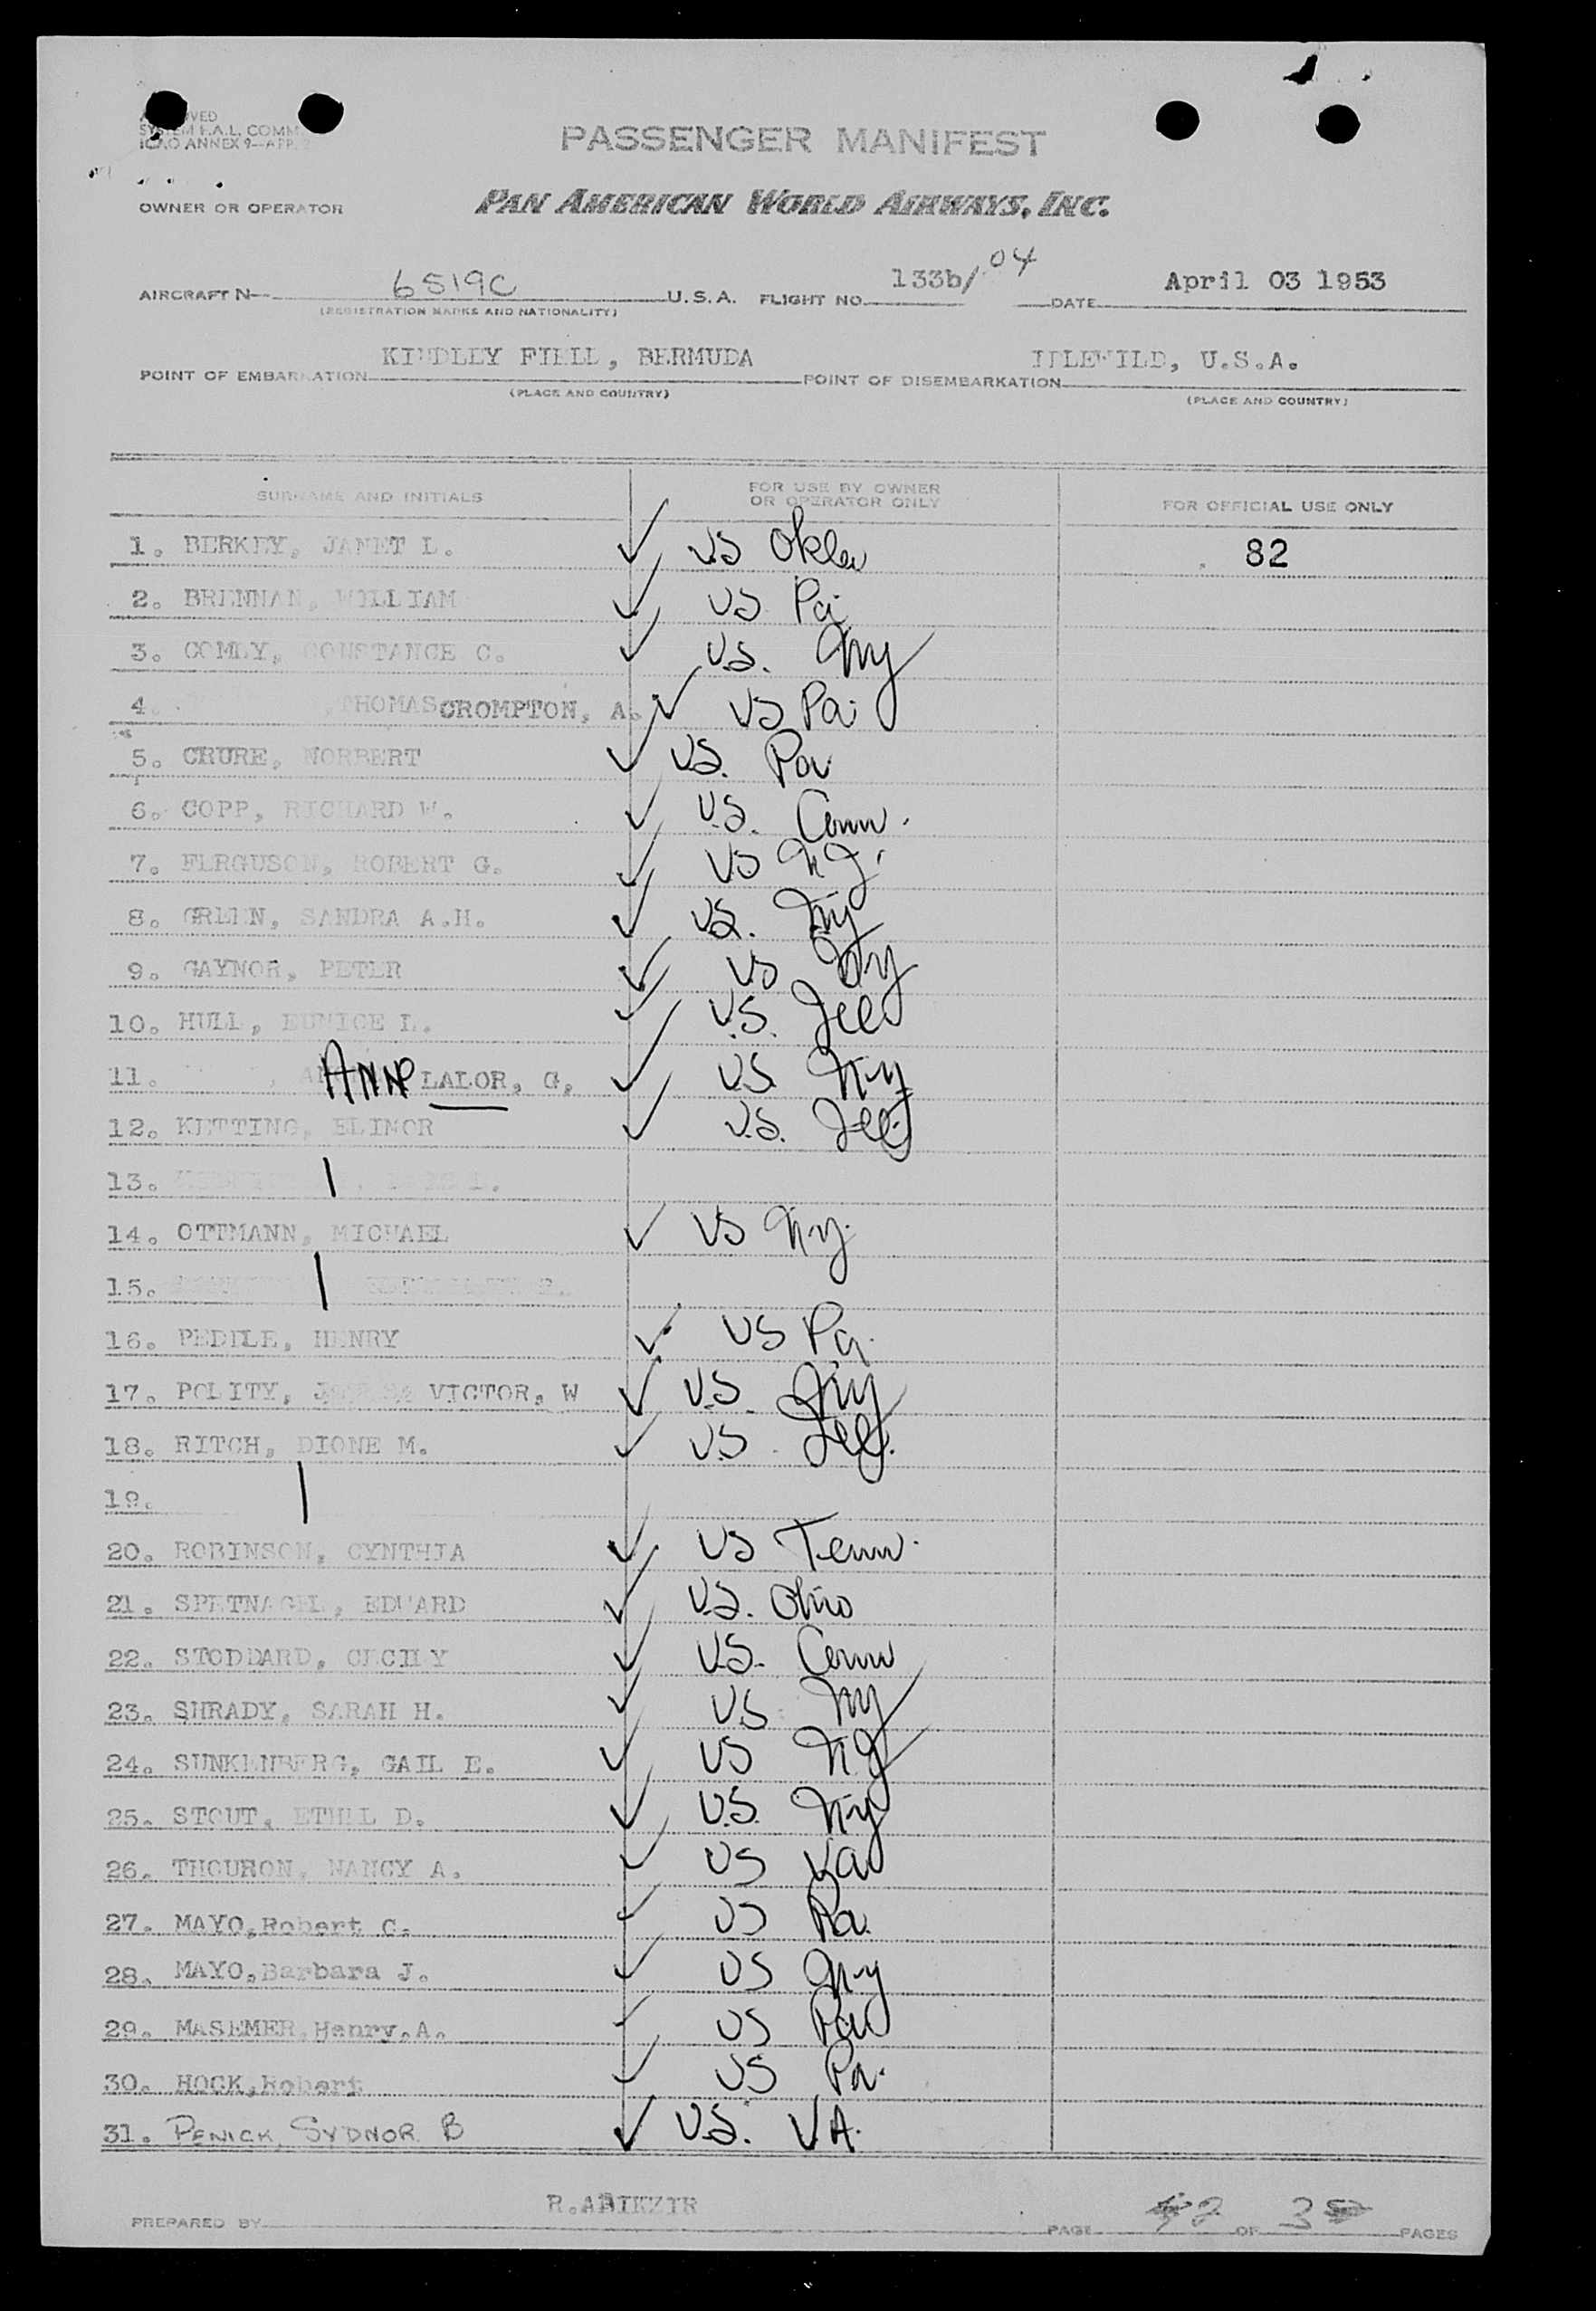 PASSENGER MANIFEST
SYSTEM F.A.L. COMM
ICAO ANNEX 9—APP.
OWNER OR OPERATOR PAN AMERICAN WORLD AIRWAYS, INC.
AIRCRAFT N— 6519C U.S.A. FLIGHT NO. 133b/04 DATE April 03 1953
(REGISTRATION MARKS AND NATIONALITY)
POINT OF EMBARKATION KINDLEY FIELD, BERMUDA POINT OF DISEMBARKATION IDLEWILD, U.S.A.
(PLACE AND COUNTRY) (PLACE AND COUNTRY)
SURNAME AND INITIALS FOR USE BY OWNER OR OPERATOR ONLY FOR OFFICIAL USE ONLY
1. BERKEY, JANET L. ✓ US Okla 82
2. BRENNAN, WILLIAM ✓ US Pa
3. COMLY, CONSTANCE C. ✓ U.S. NY
4. ,THOMAS CROMPTON, A. ✓ US Pa.
5. CRURE, NORBERT ✓ U.S. Pa
6. COPP, RICHARD W. ✓ U.S. Conn.
7. FERGUSON, ROBERT G. ✓ US NJ.
8. GREEN, SANDRA A.H. ✓ U.S. NY
9. GAYNOR, PETER ✓ US NY
10. HULL, EUNICE L. ✓ U.S. Ill
11. ANN LALOR, G, ✓ U.S. N.Y
12. KETTING, ELINOR ✓ U.S. Ill
13.
14. OTTMANN, MICHAEL ✓ US N.Y.
15.
16. PEDILE, HENRY ✓ US Pa.
17. POLITY, VICTOR, W ✓ U.S. NY
18. RITCH, DIONE M. ✓ U.S. Ill.
19.
20. ROBINSON, CYNTHIA ✓ US Tenn.
21. SPETNAGEL, EDWARD ✓ U.S. Ohio
22. STODDARD, CECILY ✓ U.S. Conn
23. SHRADY, SARAH H. ✓ U.S. NY
24. SUNKENBERG, GAIL E. ✓ US NJ
25. STOUT, ETHEL D. ✓ U.S. N.Y
26. THOURON, NANCY A. ✓ US Va
27. MAYO,Robert C. ✓ US Pa.
28. MAYO,Barbara J. ✓ US N.Y
29. MASEMER,Henry.A. ✓ US Pa
30. HOCK,Robert ✓ US Pa.
31. PENICK, SYDNOR B ✓ U.S. VA.
PREPARED BY R.ABIKZIR PAGE 2 OF 3 PAGES